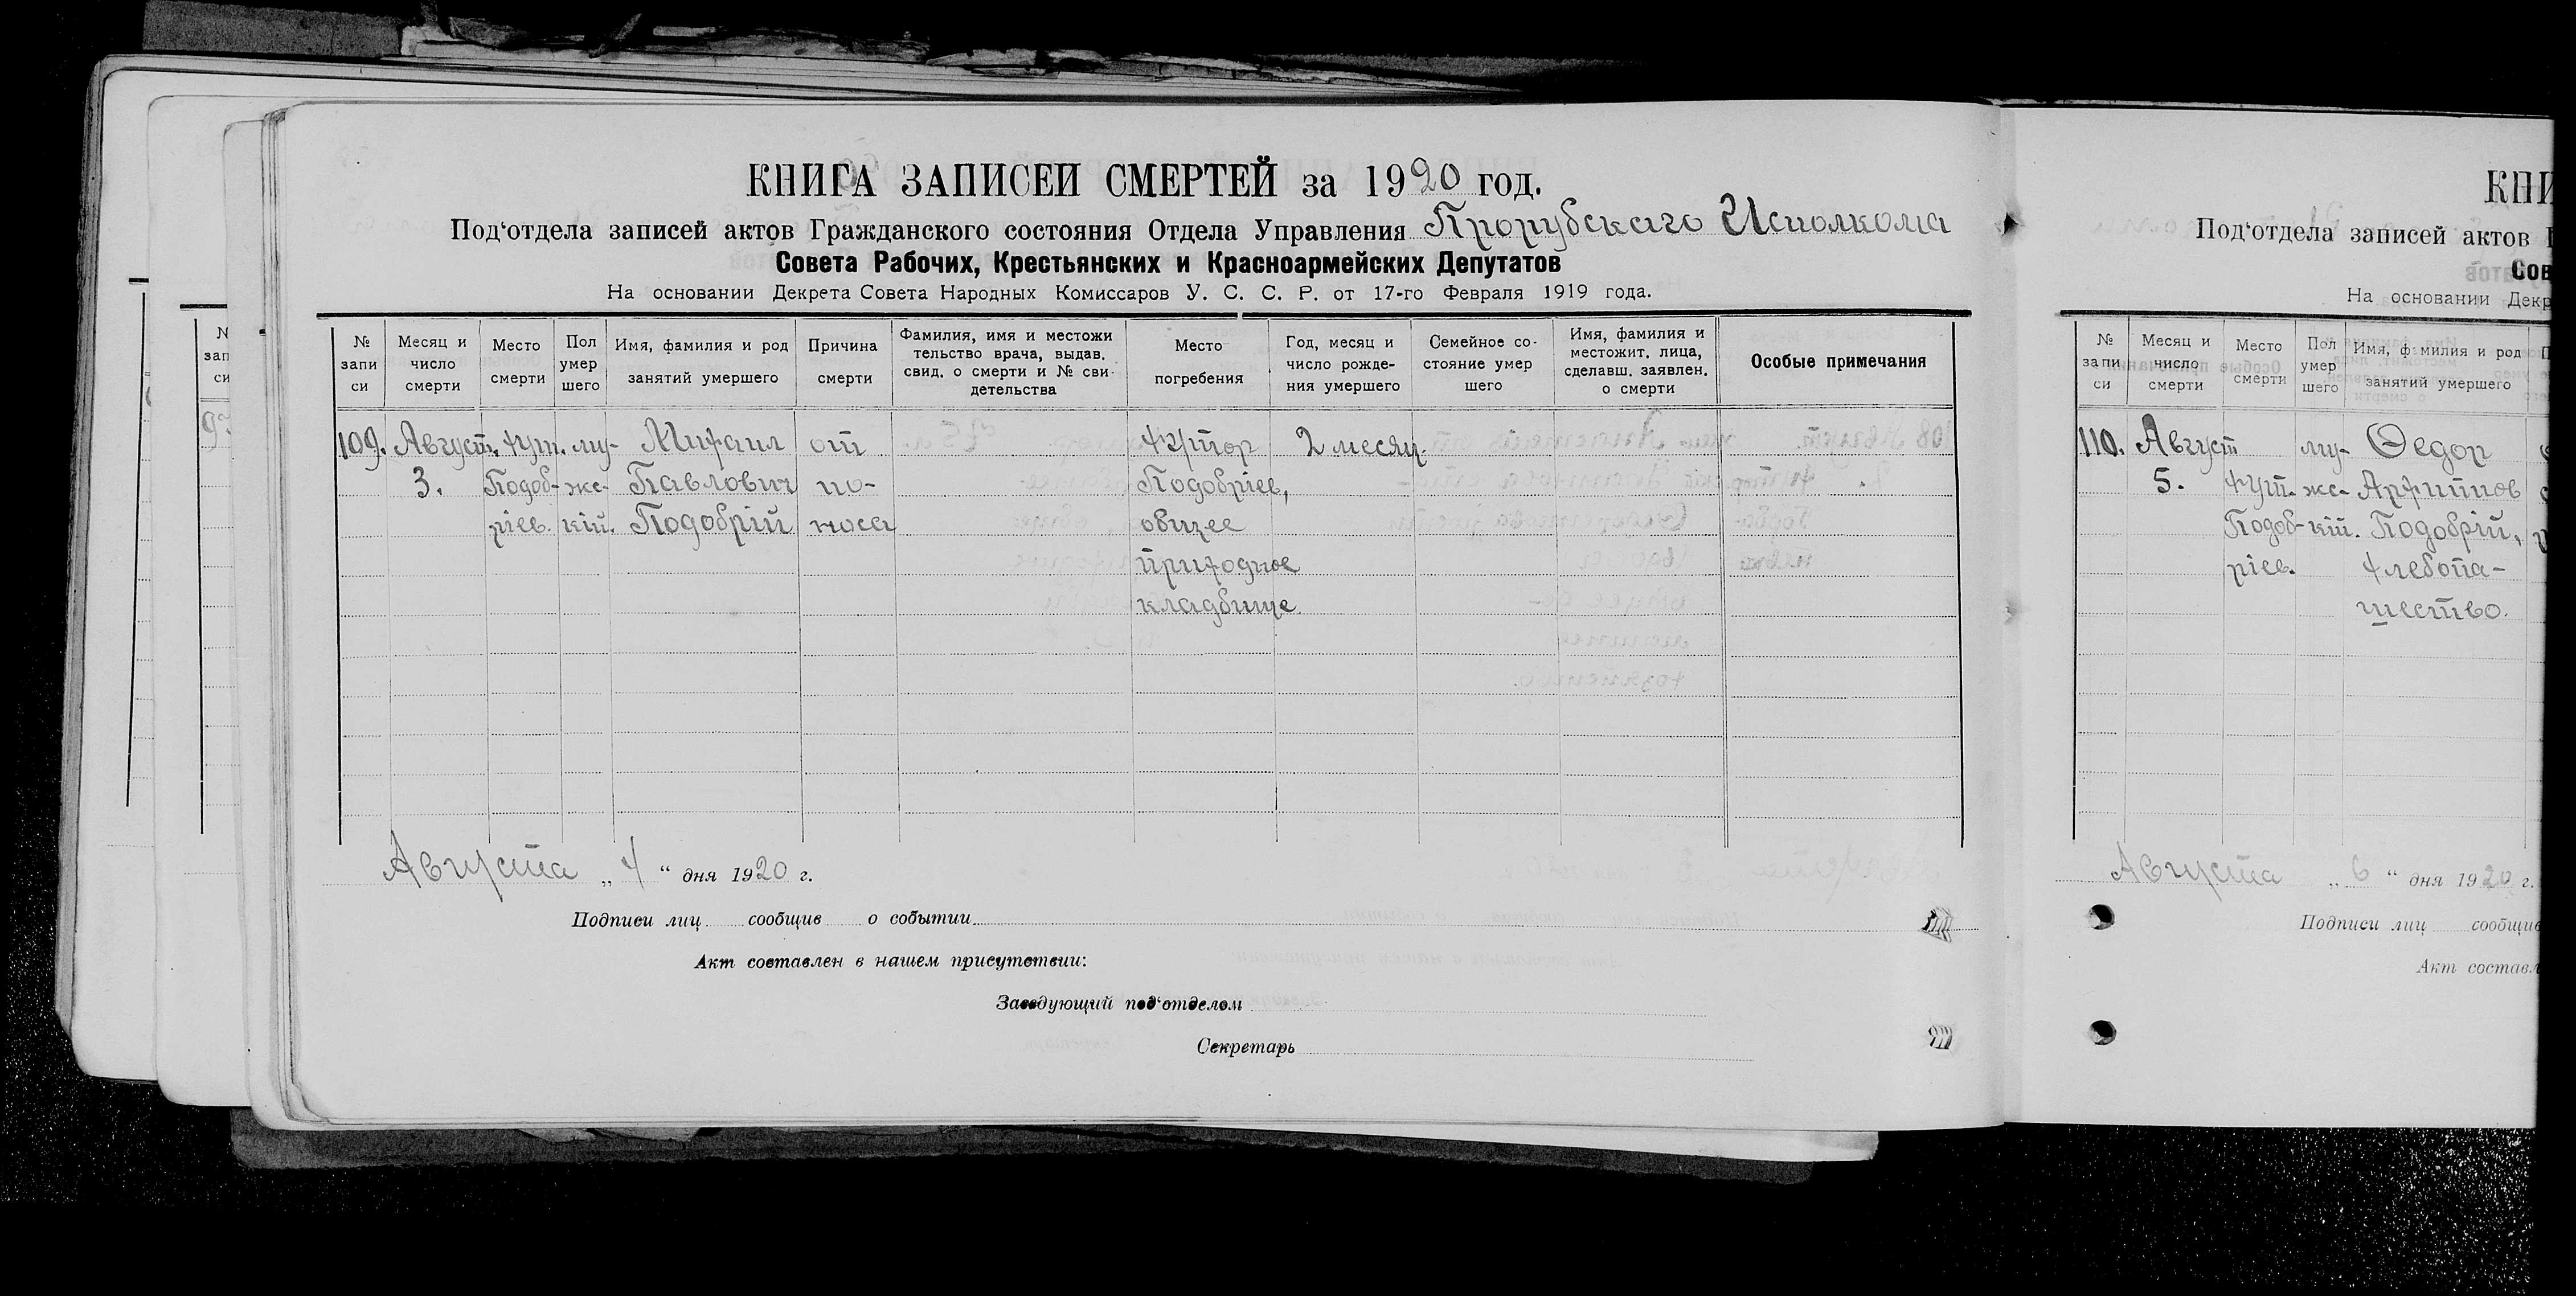 КНИГА ЗАПИСЕЙ СМЕРТЕЙ за 1920 год.
Под'отдела записей актов Гражданского состояния Отдела Управления Прорубскаго Исполкома
Совета Рабочих, Крестьянских и Красноармейских Депутатов
На основании Декрета Совета Народных Комиссаров У. С. С. Р. от 17-го Февраля 1919 года.
№ запи си
Месяц и число смерти
Место смерти
Пол умер шего
Имя, фамилия и род занятий умершего
Причина смерти
Фамилия, имя и местожи тельство врача, выдав. свид. о смерти и № сви- детельства
Место погребения
Год, месяц и число рожде- ния умершего
Семейное со- стояние умер шего
Имя, фамилия и местожит. лица, сделавш. заявлен. о смерти
Особые примечания
109. Август. хут. му- Михаил от Хутор 2 месяц.
3. Подоб- жс- Павлович по- Подобріев,
ріев. кій. Подобрій носа общее
приходное
кладбище
Августа „ 4 “ дня 1920 г.
Подписи лиц сообщив о событии
Акт составлен в нашем присутствии:
Заведующий под'отделом
Секретарь
КНИ
Под'отдела записей актов Г
Сов
На основании Декр
№ запи си
Месяц и число смерти
Место смерти
Пол умер шего
Имя, фамилия и род занятий умершего
110. Август му- Федор
5. хут. жс- Архипов
Подоб- кій. Подобрій,
ріев. хлебопа-
шество.
Августа „ 6 “ дня 1920 г.
Подписи лиц сообщив
Акт составл